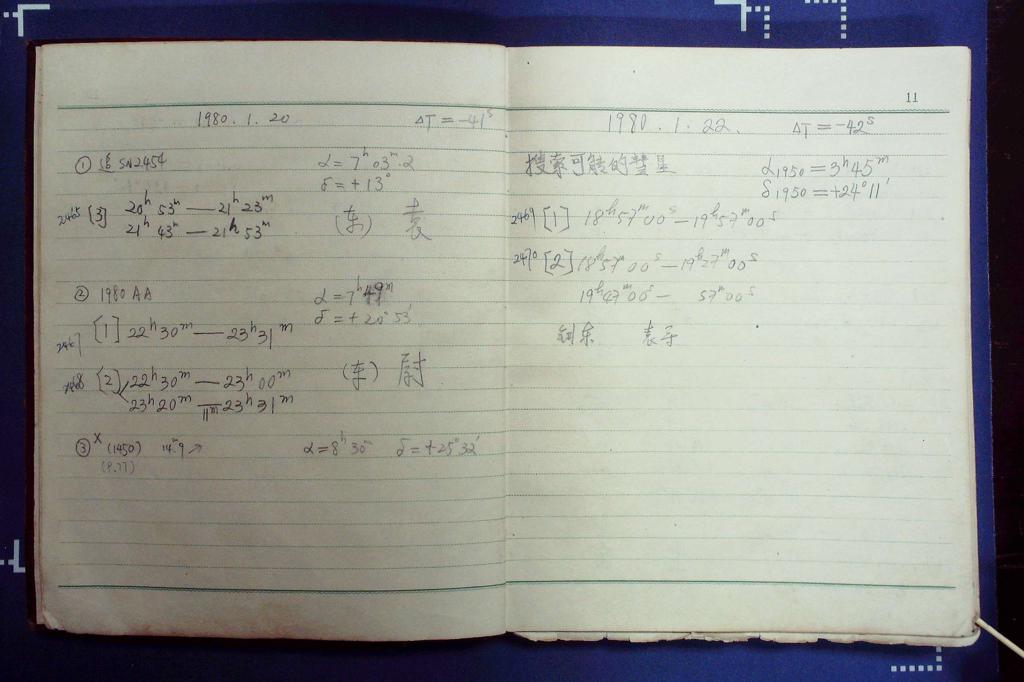 1980.1.20 ΔT=-41ˢ
① 追 SN2454 α=7ʰ03ᵐ.2
δ=+13°
2465 [3] 20ʰ53ᵐ—21ʰ23ᵐ
21ʰ43ᵐ—21ʰ53ᵐ (东) 袁
② 1980 AA α=7ʰ49ᵐ
δ=+20°53′
2467 [1] 22ʰ30ᵐ—23ʰ31ᵐ
2468 [2] 22ʰ30ᵐ—23ʰ00ᵐ (东) 尉
23ʰ20ᵐ—23ʰ31ᵐ
11ᵐ
③ x (1450) 14ᵐ.9↗ α=8ʰ30ᵐ δ=+25°32′
(P.77)
11
1980.1.22. ΔT=-42ˢ
搜索可能的彗星 α1950=3ʰ45ᵐ
δ1950=+24°11′
2469 [1] 18ʰ57ᵐ00ˢ—19ʰ57ᵐ00ˢ
2470 [2] 18ʰ57ᵐ00ˢ—19ʰ27ᵐ00ˢ
19ʰ47ᵐ00ˢ— 57ᵐ00ˢ
东 袁